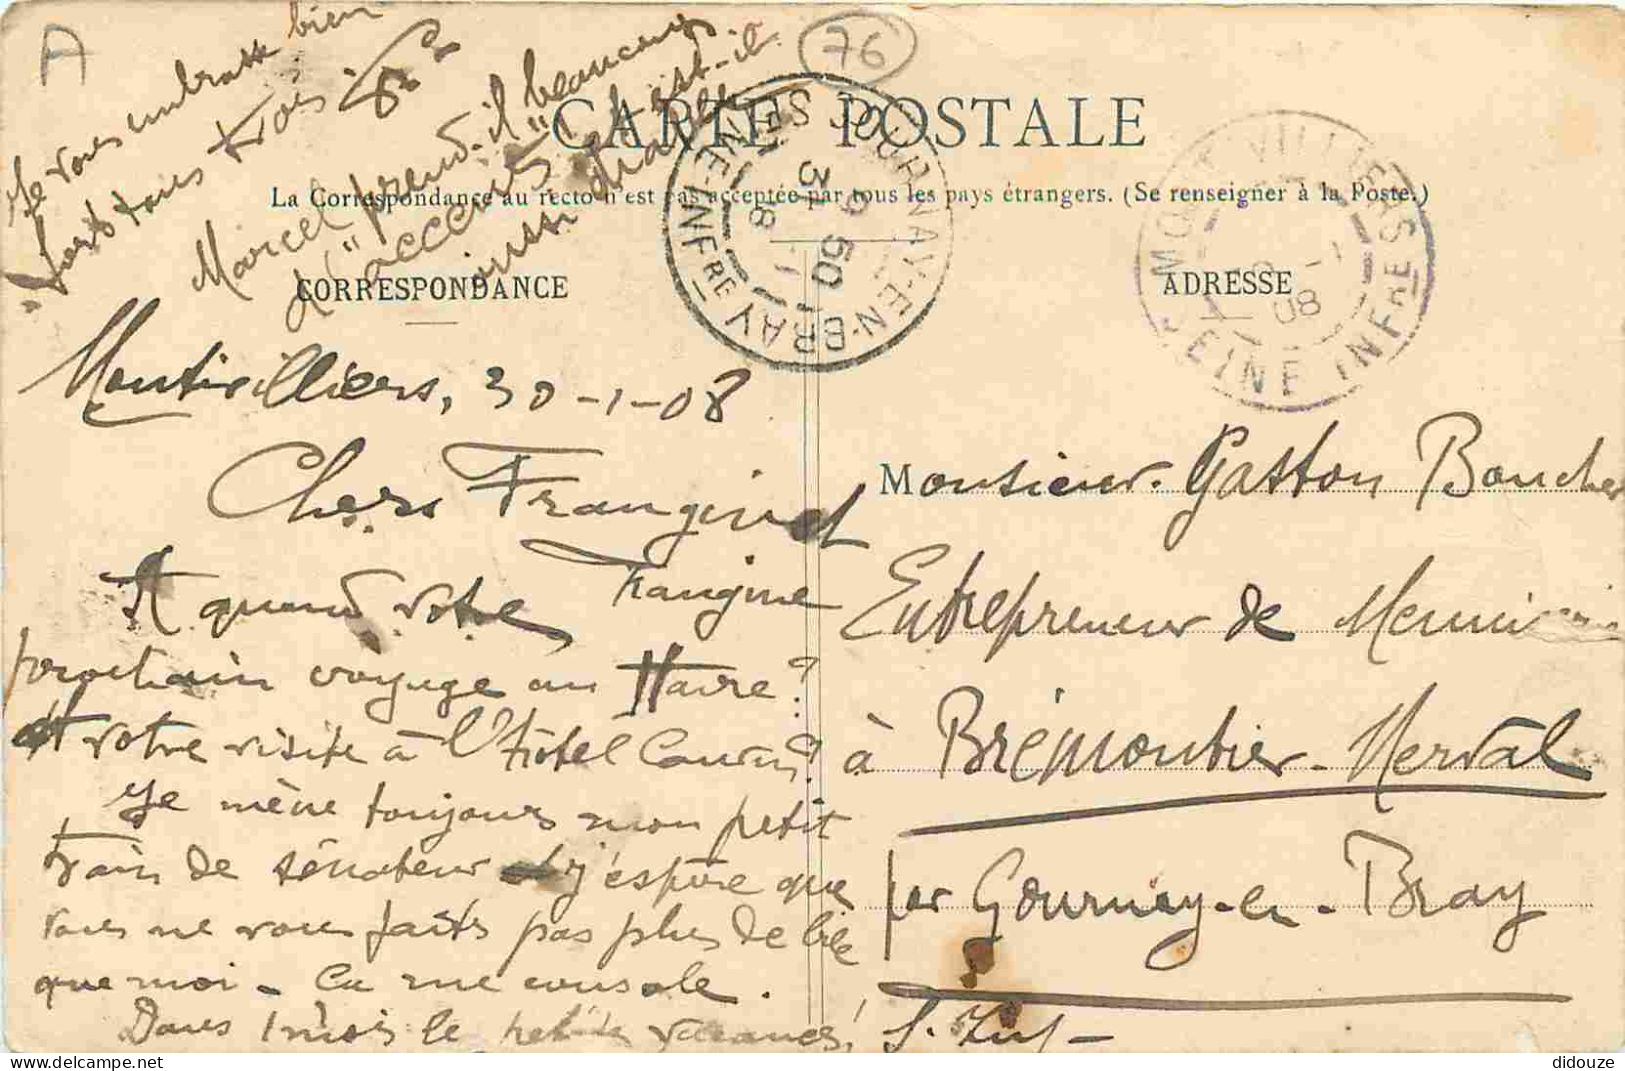 A
76
Je vous embrasse bien
fort tous trois
Marcel prend-il beaucoup
d'"acccuis" et est-il
aussi diable
CARTE POSTALE
La Correspondance au recto n'est pas acceptée par tous les pays étrangers. (Se renseigner à la Poste.)
CORRESPONDANCE
ADRESSE
GOURNAY-EN-BRAY
SEINE-INFRE
31
9 50
MONTIVILLIERS
SEINE INFRE
08
Montivilliers, 30-1-08
Chers Frangin et
Frangine
A quand votre
prochain voyage au Havre?
et votre visite à l'Hôtel
Je mène toujours mon petit
train de sénateur et j'espère que
vous ne vous faits pas plus de bile
que moi - Ca me console.
Dans 1 mois le petites vacances!
Monsieur Gaston Boucher
Entrepreneur de Menuiserie
à Brémontier-Merval
par Gournay-en-Bray
S. Inf-
didouze